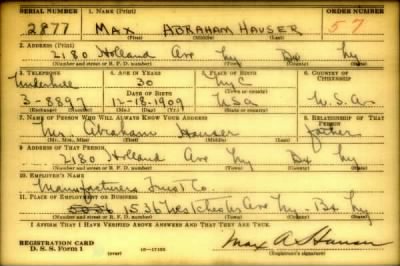 SERIAL NUMBER 1. NAME (Print) ORDER NUMBER
2877 MAX ABRAHAM HAUSER 57
(First) (Middle) (Last)
2. ADDRESS (Print)
2180 Holland Ave Ny Bx Ny
(Number and street or R. F. D. number) (Town) (County) (State)
3. TELEPHONE 4. AGE IN YEARS 5. PLACE OF BIRTH 6. COUNTRY OF CITIZENSHIP
Underhill 30 NyC
DATE OF BIRTH (Town or county)
3-8897 12-18-1909 USA U.S.A.
(Exchange) (Number) (Mo.) (Day) (Yr.) (State or country)
7. NAME OF PERSON WHO WILL ALWAYS KNOW YOUR ADDRESS 8. RELATIONSHIP OF THAT PERSON
Mr. Abraham Hauser father
(Mr., Mrs., Miss) (First) (Middle) (Last)
9. ADDRESS OF THAT PERSON
2180 Holland Ave Ny Bx Ny
(Number and street or R. F. D. number) (Town) (County) (State)
10. EMPLOYER'S NAME
Manufacturers Trust Co.
11. PLACE OF EMPLOYMENT OR BUSINESS
1536 Westchester Ave Ny - Bx Ny
(Number and street or R. F. D. number) (Town) (County) (State)
I AFFIRM THAT I HAVE VERIFIED ABOVE ANSWERS AND THAT THEY ARE TRUE.
REGISTRATION CARD
D. S. S. Form 1 (over) 16-17105 Max A. Hauser
(Registrant's signature)